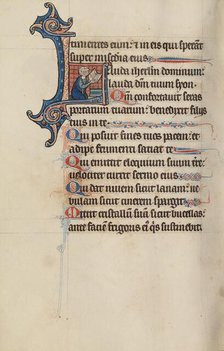 timentes eum: & in eis qui sperāt
super misc̄dia eius
Lauda iherlm dominum:
lauda deum tuum syon
Qm̄ confortauit seras
portarum tuarum: benedixit filijs
tuis in te
Qui posuit fines tuos pacem: &
adipe frumenti satiat te
Qui emittit eloquium suum tr̄re:
uelociter currit sermo eius
Qui dat niuem sicut lanam: ne
bulam sicut cinerem spargit
Mittit cristallum suum sicut bucellas:
ante faciē frigoris eius q̇s sustinebit